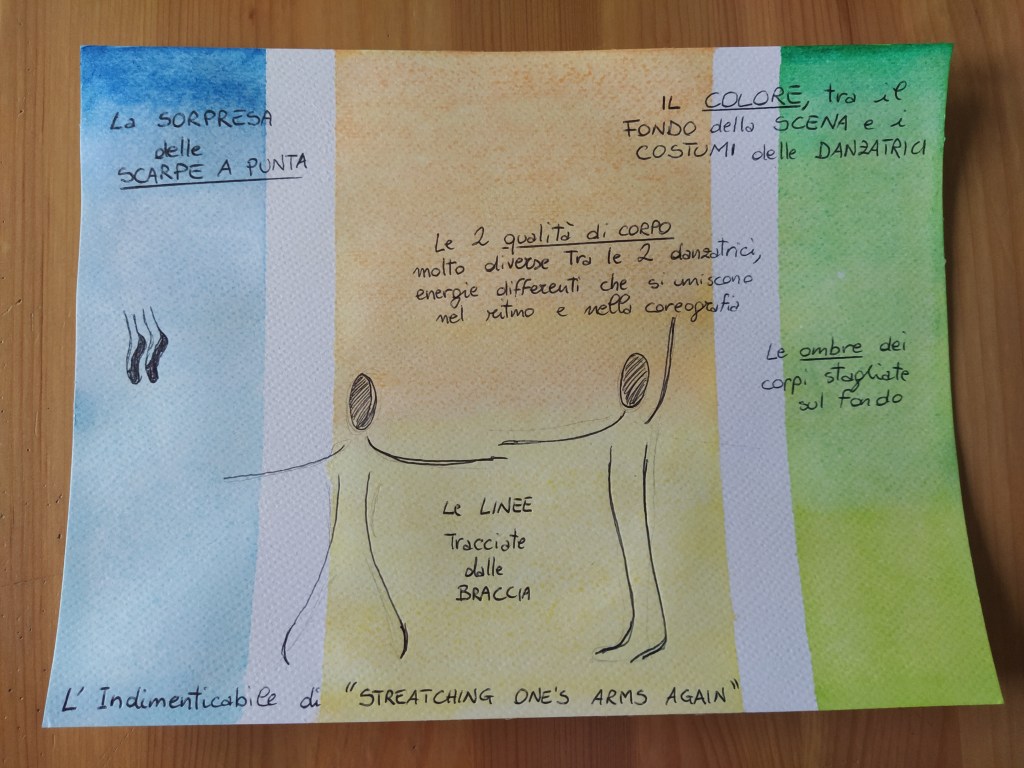 La SORPRESA
delle
SCARPE A PUNTA
IL COLORE, tra il
FONDO della SCENA e i
COSTUMI delle DANZATRICI
Le 2 qualità di CORPO
molto diverse Tra le 2 danzatrici,
energie differenti che si uniscono
nel ritmo e nella coreografia
Le ombre dei
corpi stagliate
sul fondo
Le LINEE
Tracciate
dalle
BRACCIA
L' Indimenticabile di "STREATCHING ONE'S ARMS AGAIN"